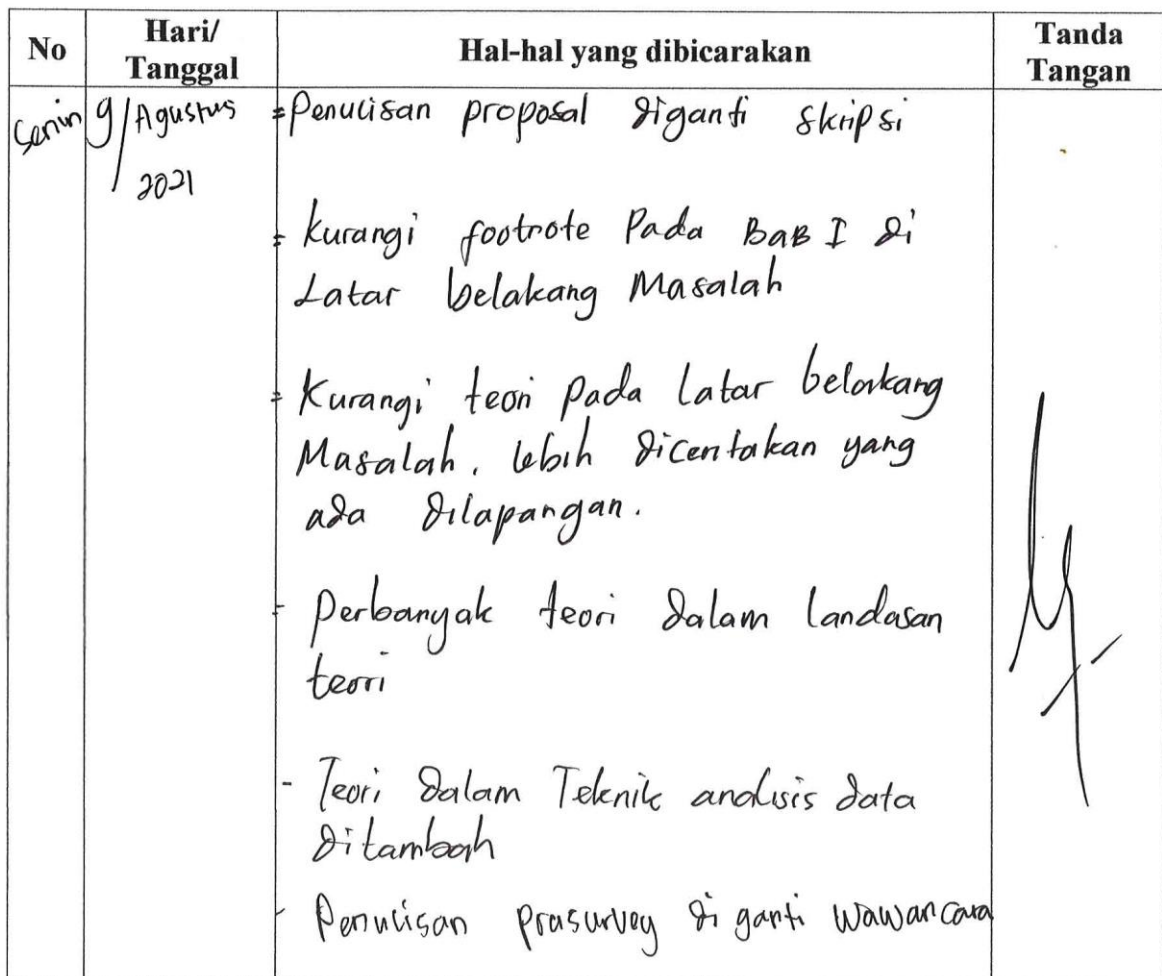 No
Hari/
Tanggal
Hal-hal yang dibicarakan
Tanda
Tangan
Senin 9/Agustus
2021
- Penulisan proposal diganti skripsi
- Kurangi footnote Pada BaB I di
Latar belakang Masalah
- Kurangi teori pada latar belakang
Masalah. lebih diceritakan yang
ada dilapangan.
- Perbanyak teori dalam landasan
teori
- Teori dalam Teknik analisis data
ditambah
- Penulisan prasurvey di ganti wawancara